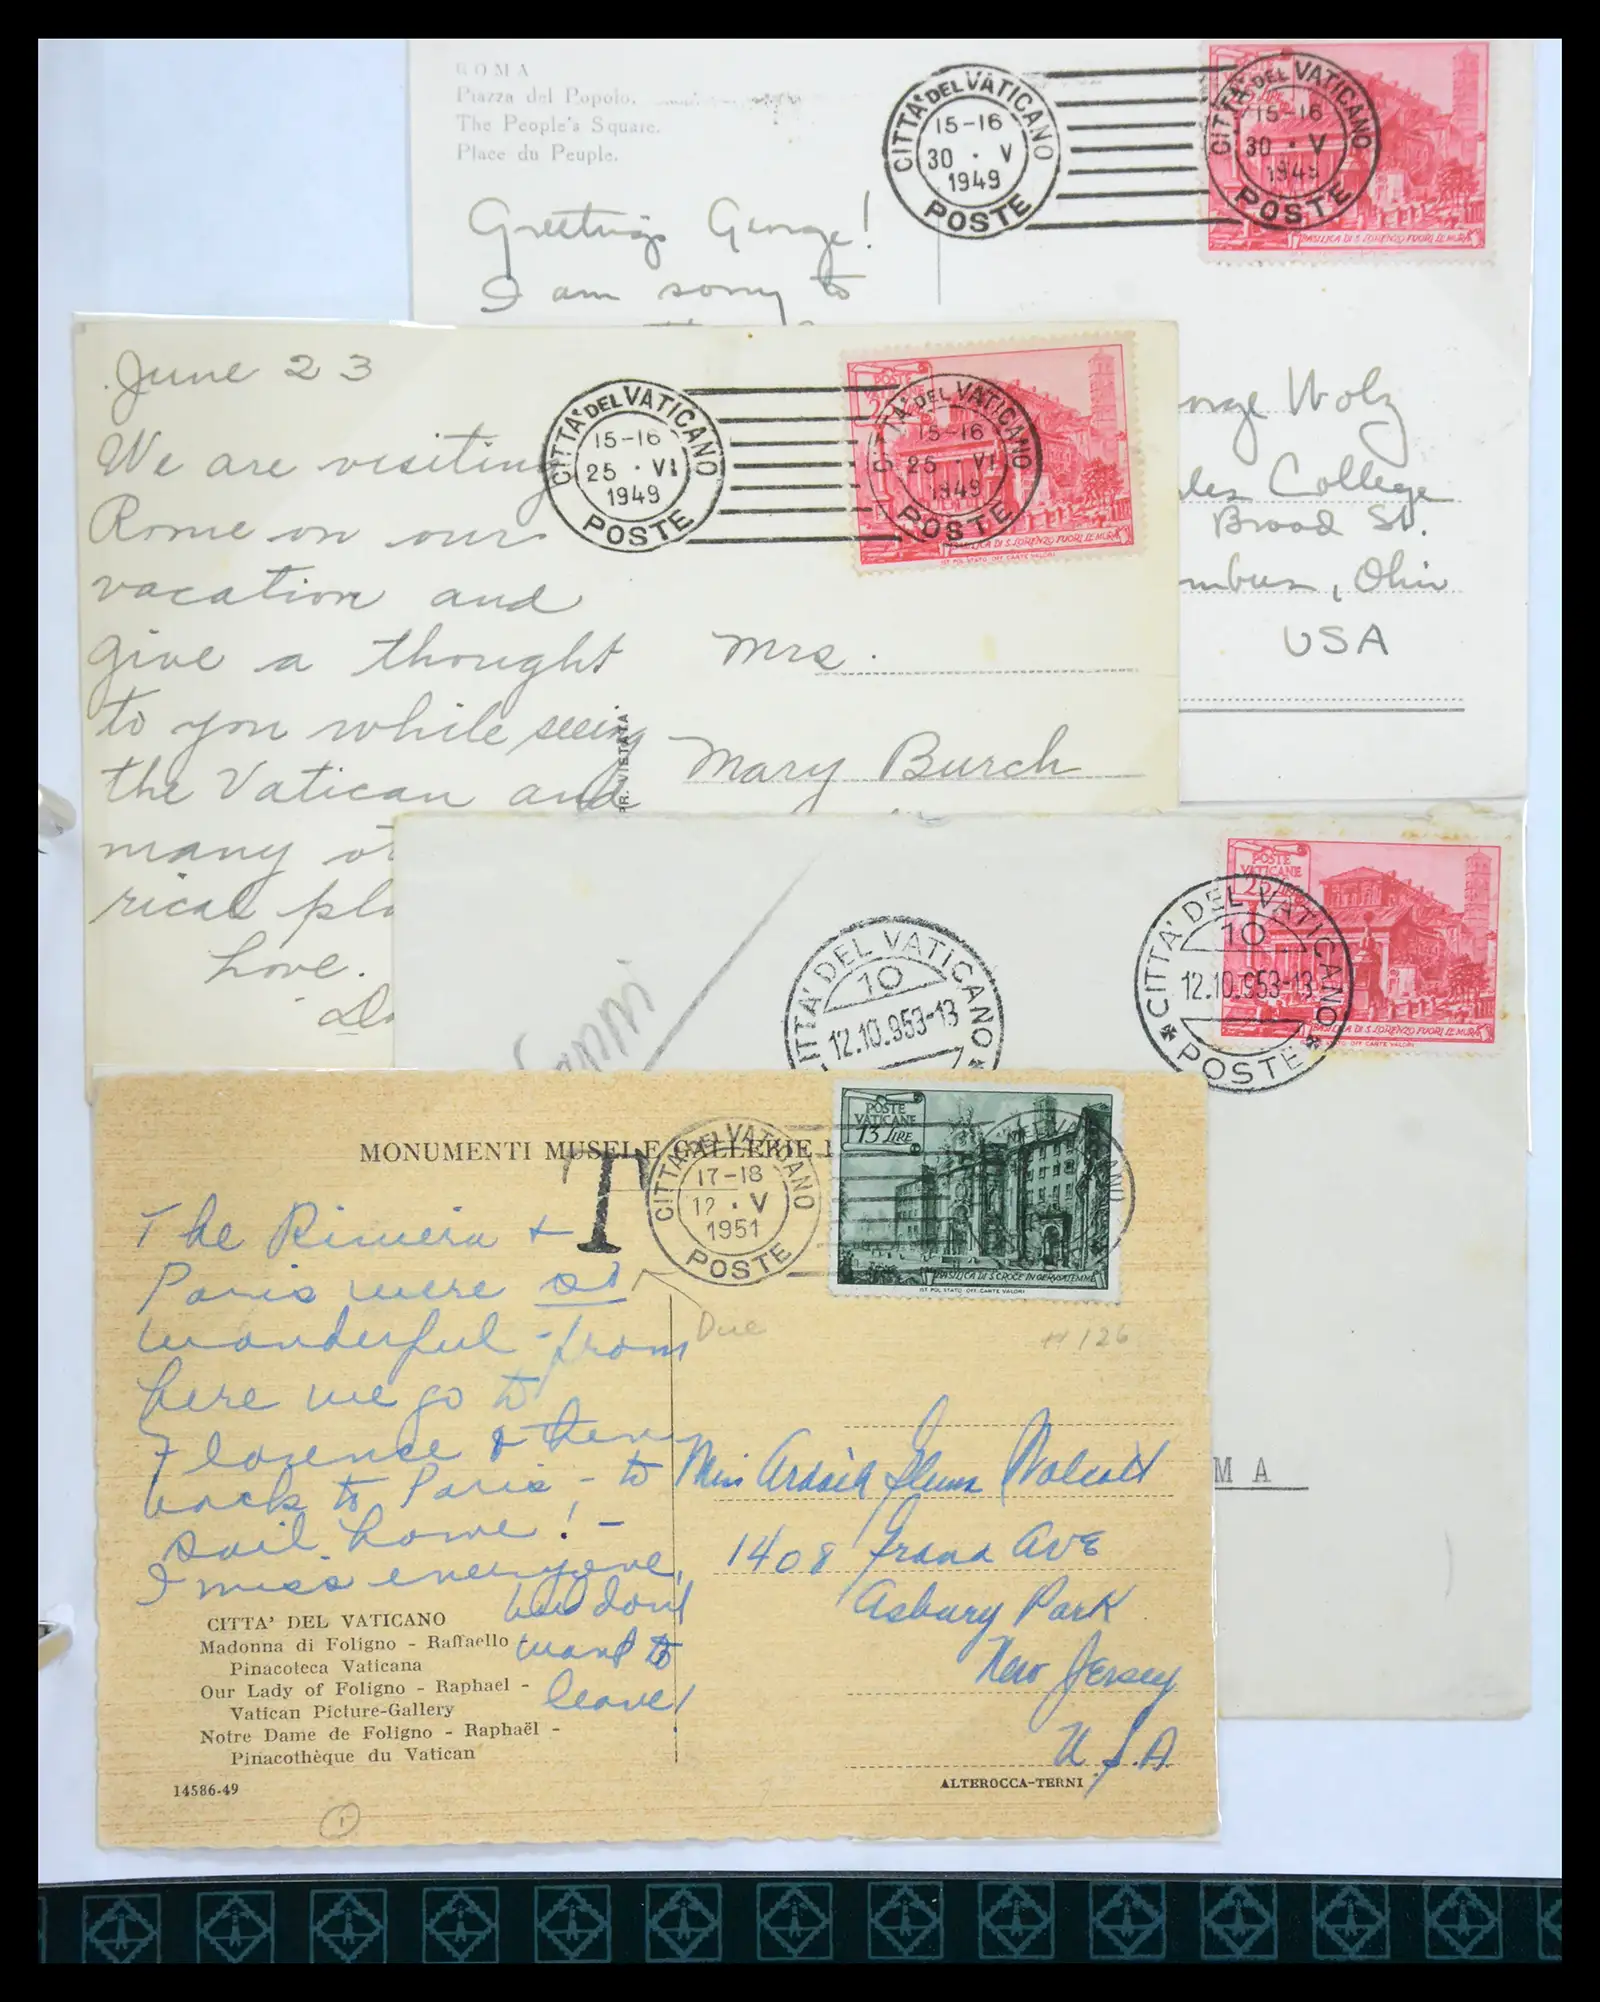 ROMA
Piazza del Popolo.
The People's Square.
Place du Peuple.
CITTA' DEL VATICANO
15-16
30 · V
1949
POSTE
CITTA' DEL VATICANO
15-16
30 · V
1949
POSTE
BASILICA DI S. LORENZO FUORI LE MURA
Greetings George!
I am sorry to
George Wolz
College
Broad St.
mbus, Ohio
USA
June 23
We are visiting
Rome on our
vacation and
give a thought
to you while seeing
the Vatican and
many ot
rical pla
Love.
CITTA' DEL VATICANO
15-16
25 · VI
1949
POSTE
POSTE
CITTA' DEL VATICANO
15-16
25 · VI
1949
POSTE
BASILICA DI S. LORENZO FUORI LE MURA
IST. POL. STATO OFF. CARTE VALORI
Mrs.
Mary Burch
PR. VIETATA
CITTA' DEL VATICANO
10
12.10.953-13
POSTE
VATICANE
25 LIRE
CITTA' DEL VATICANO
10
12.10.953-13
POSTE
BASILICA DI S. LORENZO FUORI LE MURA
STATO OFF. CARTE VALORI
MA
MONUMENTI MUSEI E GALLERIE
T
CITTA' DEL VATICANO
17-18
12 · V
1951
POSTE
POSTE
VATICANE
13 LIRE
BASILICA DI S. CROCE IN GERUSALEMME
IST. POL. STATO OFF. CARTE VALORI
Due
H 126
The Riviera +
Paris were so
wonderful - from
here we go to
Florence & then
back to Paris - to
sail home! -
I miss everyone,
but don't
want to
leave!
Miss Walcott
1408 Grand AVE
Asbury Park
New Jersey
U.S.A.
CITTA' DEL VATICANO
Madonna di Foligno - Raffaello -
Pinacoteca Vaticana
Our Lady of Foligno - Raphael -
Vatican Picture-Gallery
Notre Dame de Foligno - Raphaël -
Pinacothèque du Vatican
14586-49
ALTEROCCA-TERNI
1